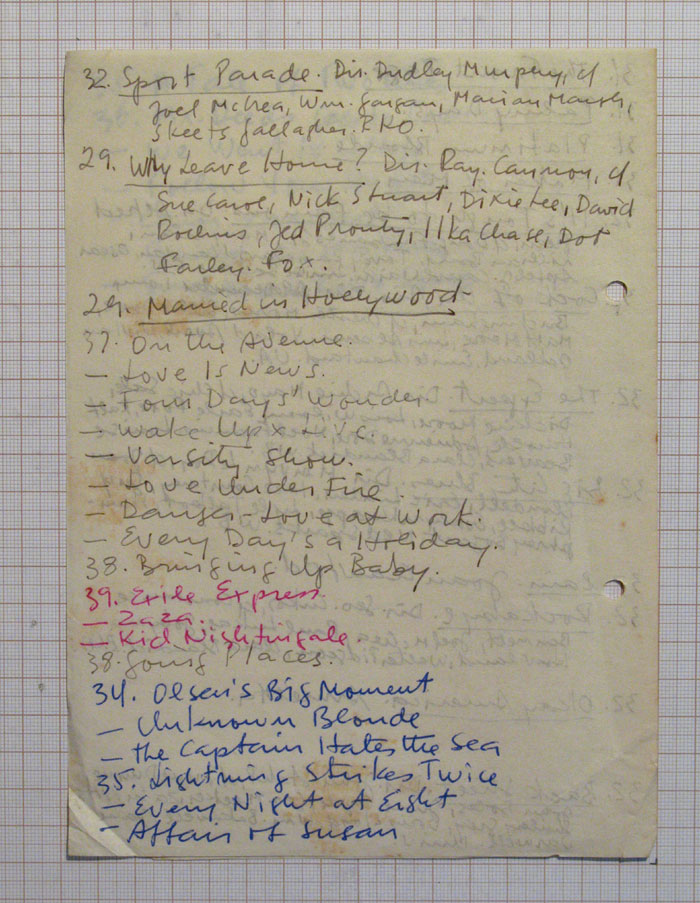 32. Sport Parade. Dir. Dudley Murphy, c/
Joel McCrea, Wm. Gargan, Marian Marsh,
Skeets Gallagher. RKO.
29. Why Leave Home? Dir. Ray. Cannon, c/
Sue Carol, Nick Stuart, Dixie Lee, David
Rollins, Jed Prouty, Ilka Chase, Dot
Farley. Fox.
29. Married in Hollywood
37. On the Avenue.
— Love Is News.
— Four Days' Wonder
— Wake Up
— Varsity Show.
— Love Under Fire.
— Danger-Love at Work.
— Every Day's a Holiday.
38. Bringing Up Baby.
39. Exile Express
— Zaza.
— Kid Nightingale
38. Going Places.
34. Olsen's Big Moment
— Unknown Blonde
— The Captain Hates the Sea
35. Lightning Strikes Twice
— Every Night at Eight
— Affair of Susan